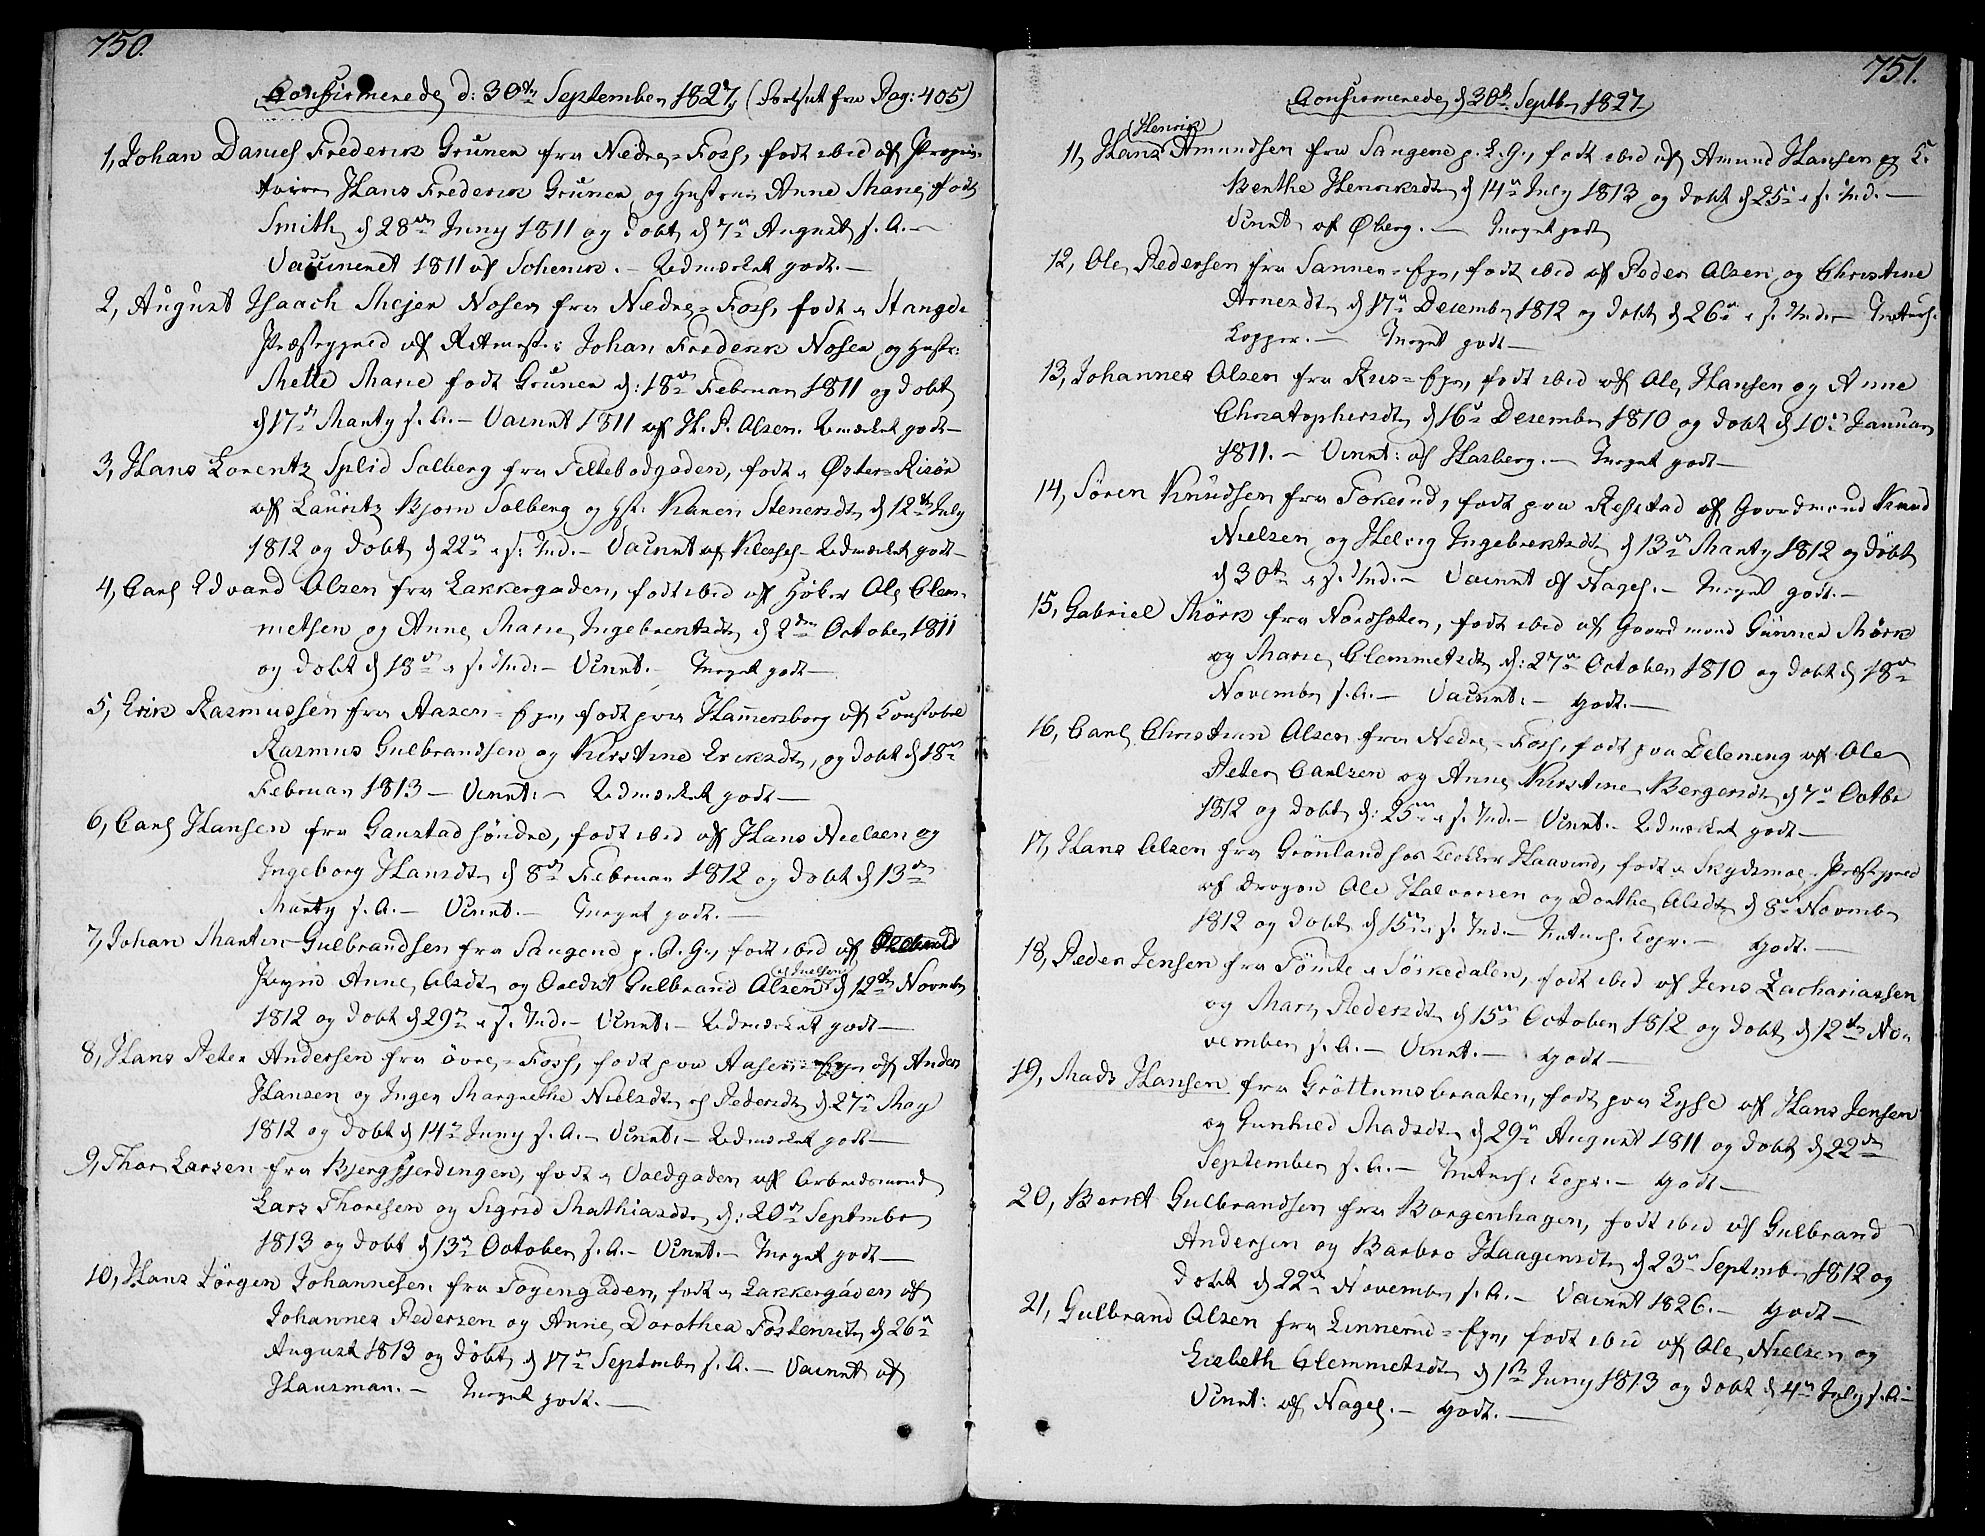 750.
Confirmerede d: 30te September 1827, (Fortsat fra Pag: 405)
1, Johan Daniel Frederik Gruner fra Nedre=Foss, født ibid af Proprie-
tairen Hans Frederik Gruner og Hustrue Anne Marie født
Smith d 28de Juny 1811 og døbt d 7de August s. A. —
Vaccineret 1811 af Schenck. — Udmærket godt. —
2, August Isaach Mejer Nosen fra Nedre=Foss, født i Stange
Præstegjeld af Ritmester Johan Frederik Nosen og Hustr:
Mette Marie født Gruner d: 18de Februar 1811 og døbt
d 17de Marty s. A. — Vaccint 1811 af H. P. Olsen. Udmærket godt —
3, Hans Lorentz Splid Solberg fra Feltebodgaden, født i Øster=Risør
af Lauritz Bjorn Solberg og Hst: Karen Stenersdtr d 12te July
1812 og døbt d 22de i s. Md. — Vaccint af — Udmærket godt —
4, Carl Edvard Olsen fra Lakkergaden, født ibid af Høker Ole Clem-
metsen og Anne Marie Ingebretsdtr d 2den October 1811
og døbt d 13de i s. Md. — Vccint. — Meget godt —
5, Erik Rasmussen fra Aasen=Eje, født paa Hamersborg af Constabel
Rasmus Gulbrandsen og Kirstine Eriksdtr, og døbt d 18de
Februar 1813 — Vccint. — Udmærket godt —
6, Carl Hansen fra Gaustad søndre, født ibid af Hans Nielsen og
Ingeborg Hansdtr d 8de Februar 1812 og døbt d 13de
Marty s. A. — Vccint. — Meget godt. —
7, Johan Martin Gulbrandsen fra Sangene p. A. G., født ibid af
Pigen Anne Olsdtr og Soldat Gulbrand Olsen d 12te Novembr
1812 og døbt d 29de i s. Md. — Vccint. — Udmærket godt —
8, Hans Peter Andersen fra øvre=Foss, født paa Aasen=Eje af Anders
Hansen og Inger Margrethe Nielsdtr el Pedersdtr d 27de May
1812 og døbt d 14de Juny s. A. — Vccint. — Udmærket godt —
9, Thor Larsen fra Bjergfjerdingen, født i Voldgaden af Arbeidsmand
Lars Thoresen og Sigrid Mathiasdtr d: 20de Septembr
1813 og døbt d 13de October s. A. — Vccint. — Meget godt —
10, Hans Jörgen Johannesen fra Toyengaden, født i Lakkergaden af
Johannes Pedersen og Anne Dorothea Tostensdtr d 26de
August 1813 og døbt d 17de Septembr s. A. — Vaccint af
Hausman. — Meget godt. —
751.
Confirmerede d 30te Septbr 1827
(Henrik)
11, Hans Amundsen fra Sangene p. L. G., født ibid af Amund Hansen og
Berthe Henriksdtr d 14de July 1813 og døbt d 25de i s. Md. —
Vccint af Øberg. — Meget godt
12, Ole Pedersen fra Sannen=Eje, født ibid af Peder Olsen og Christine
Arnesdtr d 17de Decembr 1812 og døbt d 26de i s. Md. — Naturl.
Kopper. — Meget godt —
13, Johannes Olsen fra Ruus=Eje, født ibid af Ole Hansen og Anne
Christophersdtr d 16de Decembr 1810 og døbt d 10de Januar
1811. — Vccint: af Hasberg. — Meget godt —
14, Sören Knudsen fra Fokerud, født paa Refstad af Gaardmand Knud
Nielsen og Helvig Ingebretsdtr d 13de Marty 1812 og døbt
d 30te i s. Md. — Vaccint af Nagel. — Meget godt. —
15, Gabriel Mørk fra Nordsæter, født ibid af Gaardmand Gunner Mørk
og Marie Clemmetsdtr d: 27de October 1810 og døbt d 18de
Novembr s. A. — Vaccint. — godt. —
16, Carl Christian Olsen fra Nedre=Foss, født paa Deleneng af Ole
Peter Carlsen og Anne Kirstine Bergersdtr d 7de Octbr
1812 og døbt d: 25de i s. Md. — Vccint. — Udmærket godt —
17, Hans Olsen fra Grønland hos Haavind, født i Skydsmoe Præstegjeld
af Dragon Ole Halvorsen og Dorthe Olsdtr d 8de Novembr
1812 og døbt d 15de i s. Md. — Naturl. Kopr. — godt. —
18, Peder Jensen fra Tömte i Sörkedalen, født ibid af Jens Zachariassen
og Mari Pedersdtr d 15de October 1812 og døbt d 12te No-
vember s. A. — Vccint. — godt —
19, Mads Hansen fra Gröttumsbraaten, født paa Lysse af Hans Jensen
og Gunhild Madsdtr d 29de August 1811 og døbt d 22de
September s. A. — Naturl: Kopr. — godt —
20, Bernt Gulbrandsen fra Borgenhagen, født ibid af Gulbrand
Andersen og Barbro Haagensdtr d 23de Septembr 1812 og
døbt d 22de November s. A. — Vaccint 1826. — godt —
21, Gulbrand Olsen fra Linnerud=Eje, født ibid af Ole Nielsen og
Lisbeth Clemmetsdtr d 1ste Juny 1813 og døbt d 4de July s. A. —
Vccint: af Nagel. — godt. —